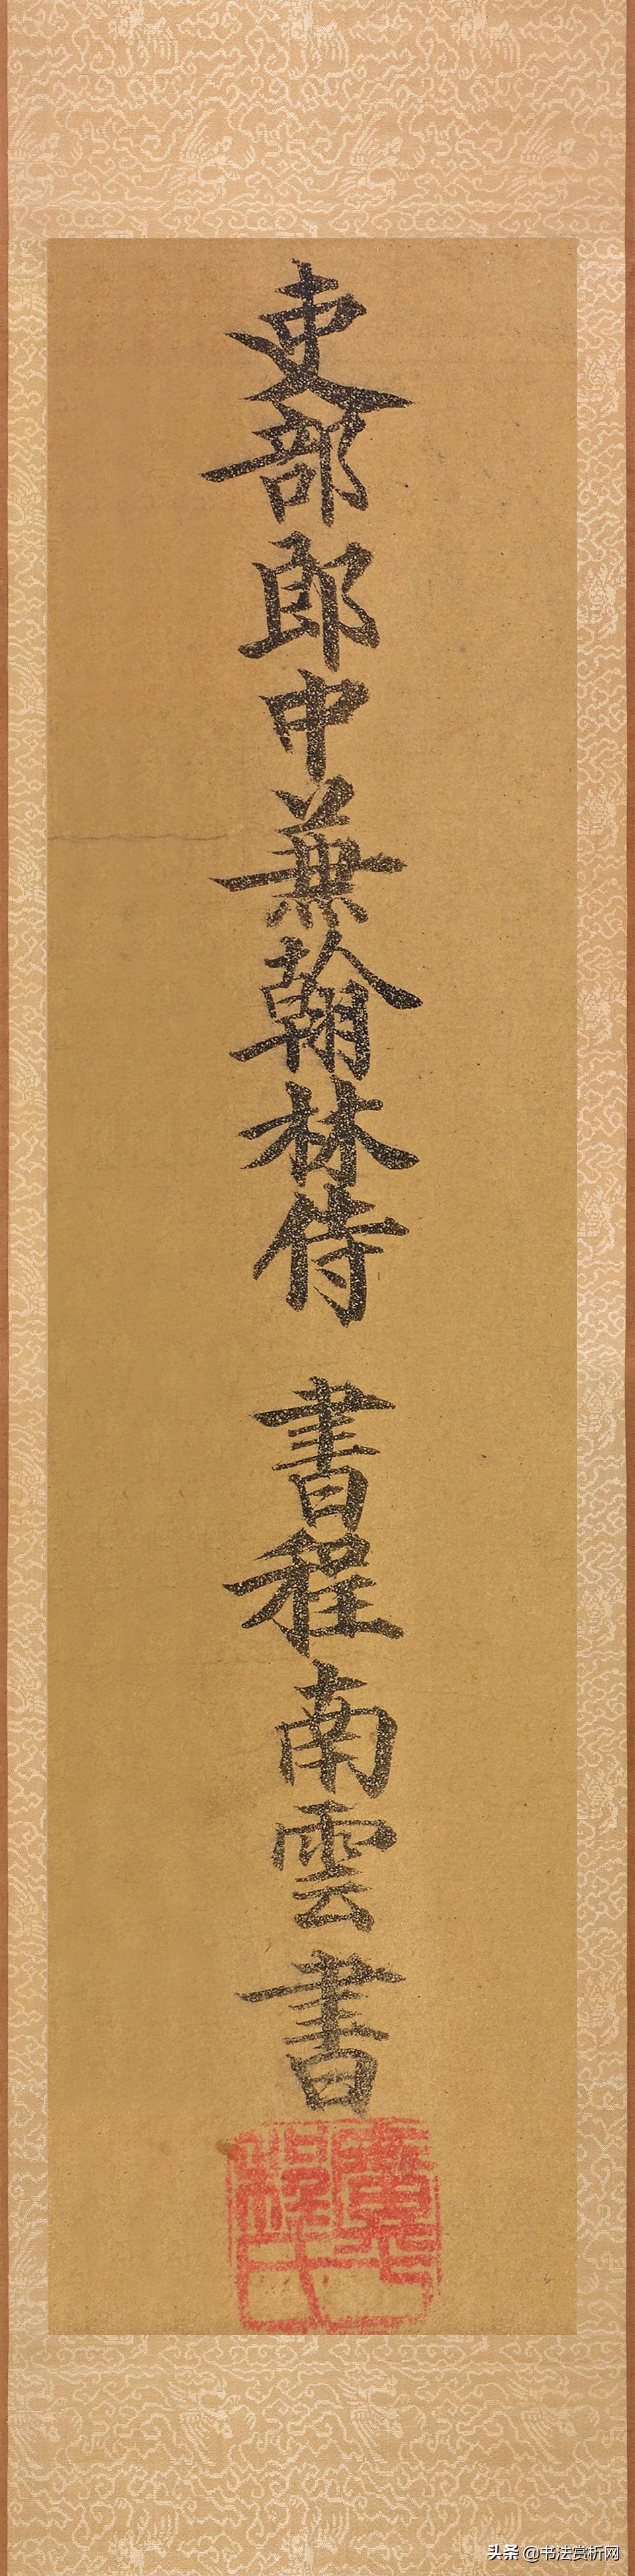 吏部郎中兼翰林侍書程南雲書
廣平程氏
头条 @书法赏析网